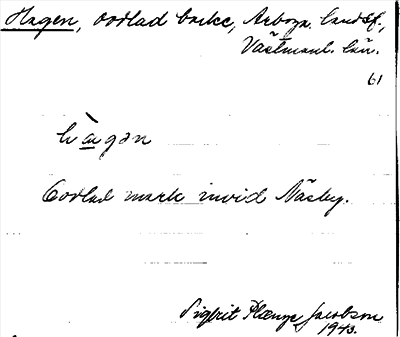 Hagen, odlad backe, Arboga landsf.,
Västmanl. län.
61
hàgən
Oodlad mark invid Näsby.
Sigbrit Plænge Jacobson
1943.